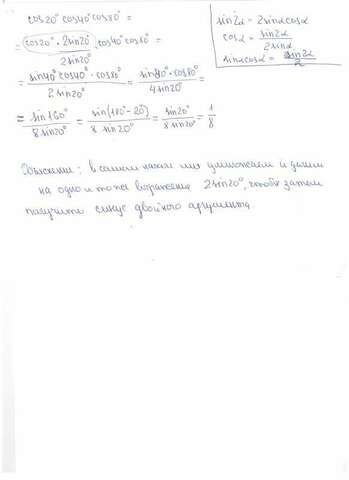 cos20° cos40° cos80° =
= cos20° · 2sin20° / 2sin20° · cos40° cos80° =
= sin40° cos40° · cos80° / 2 sin20° = sin80° · cos80° / 4 sin20° =
= sin160° / 8 sin20° = sin(180° - 20°) / 8 sin 20° = sin20° / 8 sin20° = 1/8
sin2α = 2sinα cosα
cosα = sin2α / 2 sinα
sinα cosα = sin2α / 2
Объяснение: в самом начале мы умножаем и делим
на одно и то же выражение 2sin20°, чтобы затем
получить синус двойного аргумента.